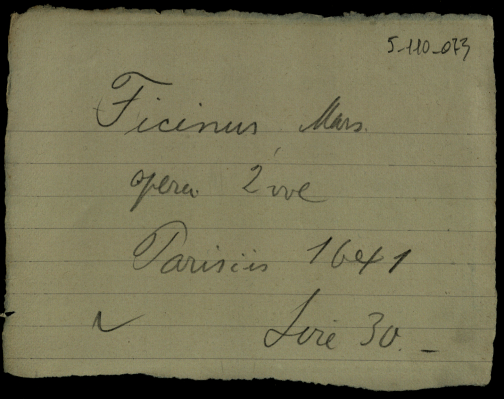 5-110-073
Ficinus Mars.
opera 2 vol
Parisiis 1641
Lire 30.-